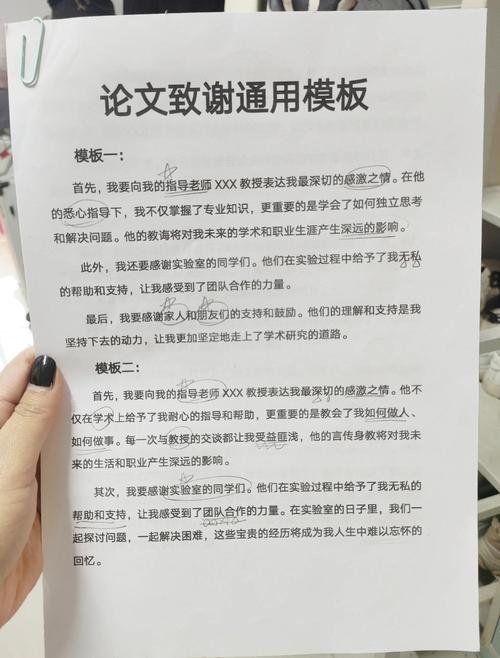 论文致谢通用模板
模板一：
首先，我要向我的指导老师 XXX 教授表达我最深切的感激之情。在他
的悉心指导下，我不仅掌握了专业知识，更重要的是学会了如何独立思考
和解决问题。他的教诲将对我未来的学术和职业生涯产生深远的影响。
此外，我还要感谢实验室的同学们。他们在实验过程中给予了我无私
的帮助和支持，让我感受到了团队合作的力量。
最后，我要感谢家人和朋友们的支持和鼓励。他们的理解和支持是我
坚持下去的动力，让我更加坚定地走上了学术研究的道路。
模板二：
首先，我要向我的指导老师 XXX 教授表达我最深切的感激之情。他不
仅在学术上给予了我耐心的指导和帮助，更重要的是教会了我如何做人、
如何做事。每一次与教授的交谈都让我受益匪浅，他的言传身教将对我未
来的生活和职业产生深远的影响。
其次，我要感谢实验室的同学们。他们在实验过程中给予了我无私的
帮助和支持，让我感受到了团队合作的力量。在实验室的日子里，我们一
起探讨问题，一起解决困难，这些宝贵的经历将成为我人生中难以忘怀的
回忆。